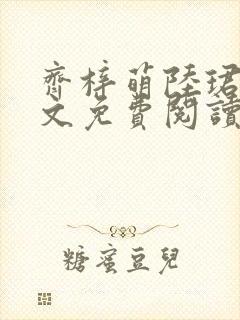 齊梓萌陸珺
文免費閱讀
糖蜜豆兒